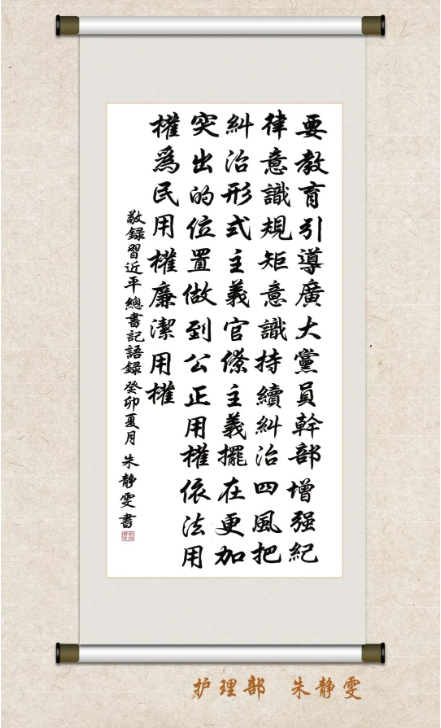 要教育引導廣大黨員幹部增强紀
律意識規矩意識持續糾治四風把
糾治形式主義官僚主義擺在更加
突出的位置做到公正用權依法用
權為民用權廉潔用權
敬録習近平總書記語録 癸卯夏月 朱静雯書
护理部 朱静雯